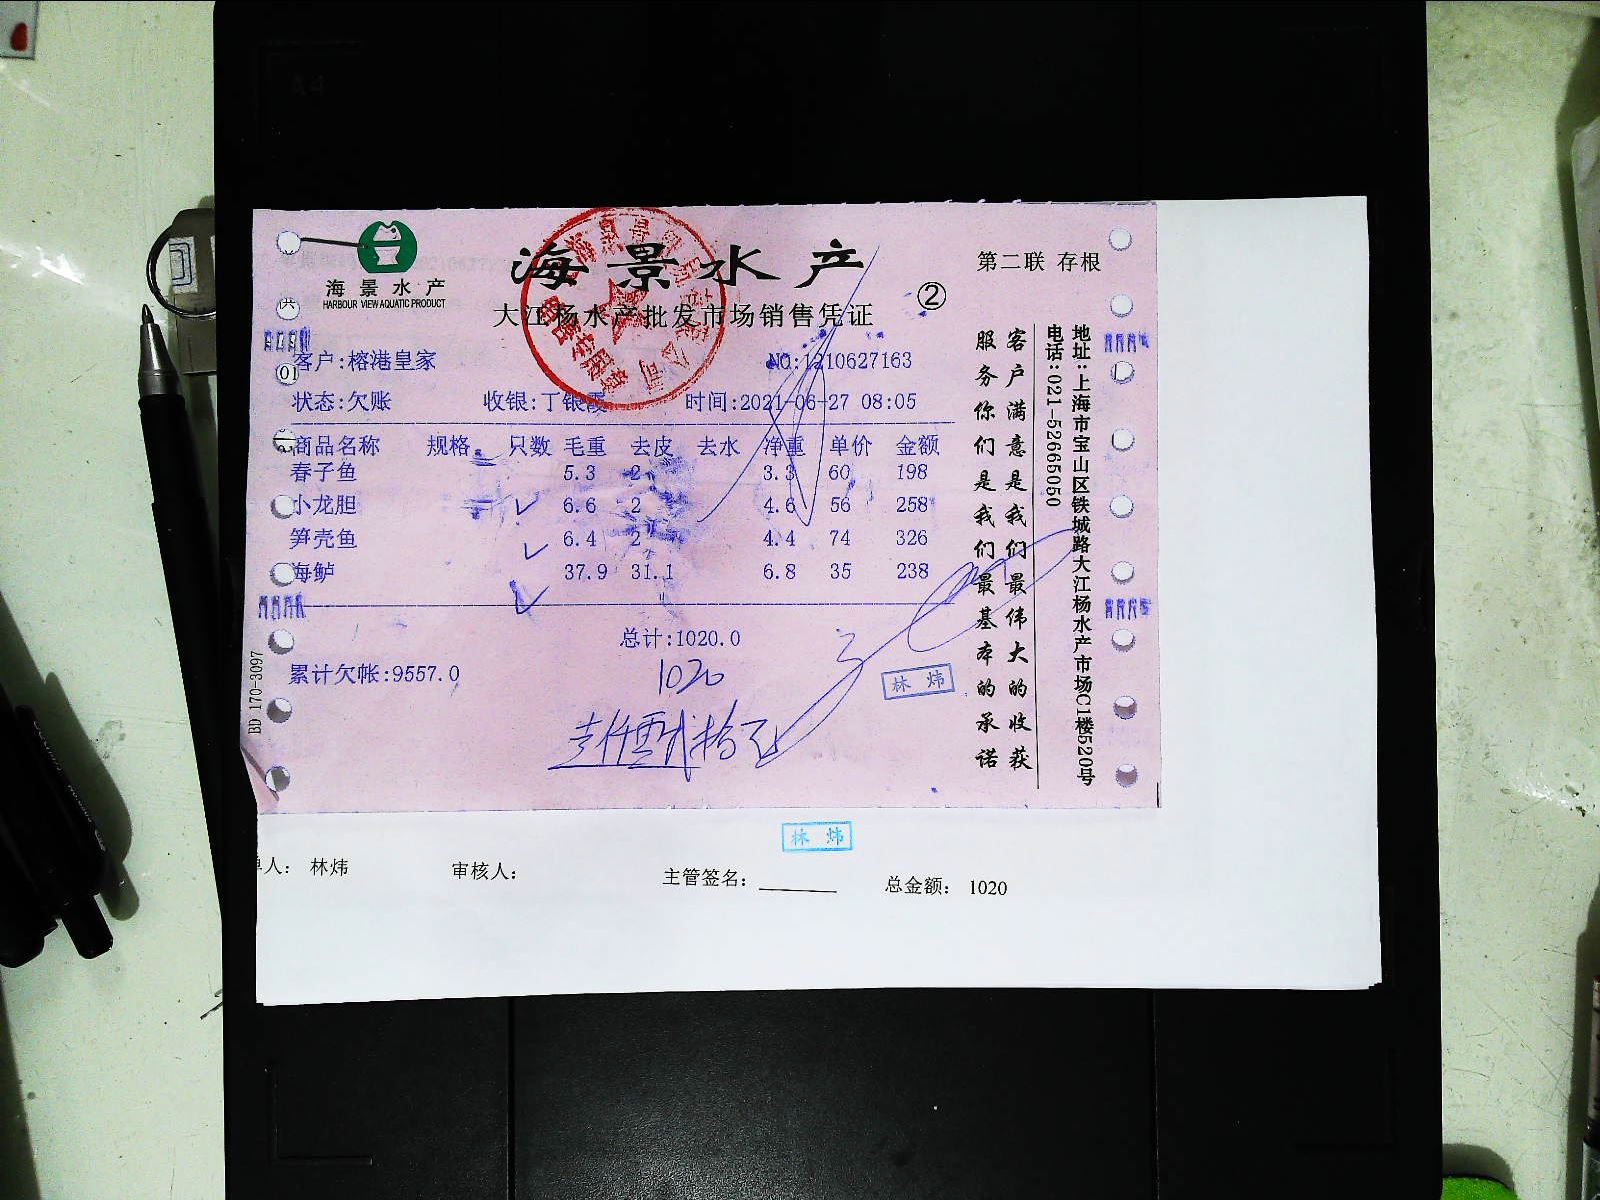 海景水产
HARBOUR VIEW AQUATIC PRODUCT
海景水产
大江杨水产批发市场销售凭证
②
第二联 存根
客户:榕港皇家
NO:1210627163
状态:欠账 收银:丁银霞 时间:2021-06-27 08:05
商品名称 规格 只数 毛重 去皮 去水 净重 单价 金额
春子鱼 5.3 2 3.3 60 198
小龙胆 6.6 2 4.6 56 258
笋壳鱼 6.4 2 4.4 74 326
海鲈 37.9 31.1 6.8 35 238
总计:1020.0
累计欠帐:9557.0
1020
壹仟零贰拾元
林炜
客户满意是我们最伟大的收获
服务你们是我们最基本的承诺
地址:上海市宝山区铁城路大江杨水产市场C1楼520号
电话:021-52665050
BD 170-3097
供
01
林炜
单人: 林炜 审核人: 主管签名: 总金额: 1020
A4